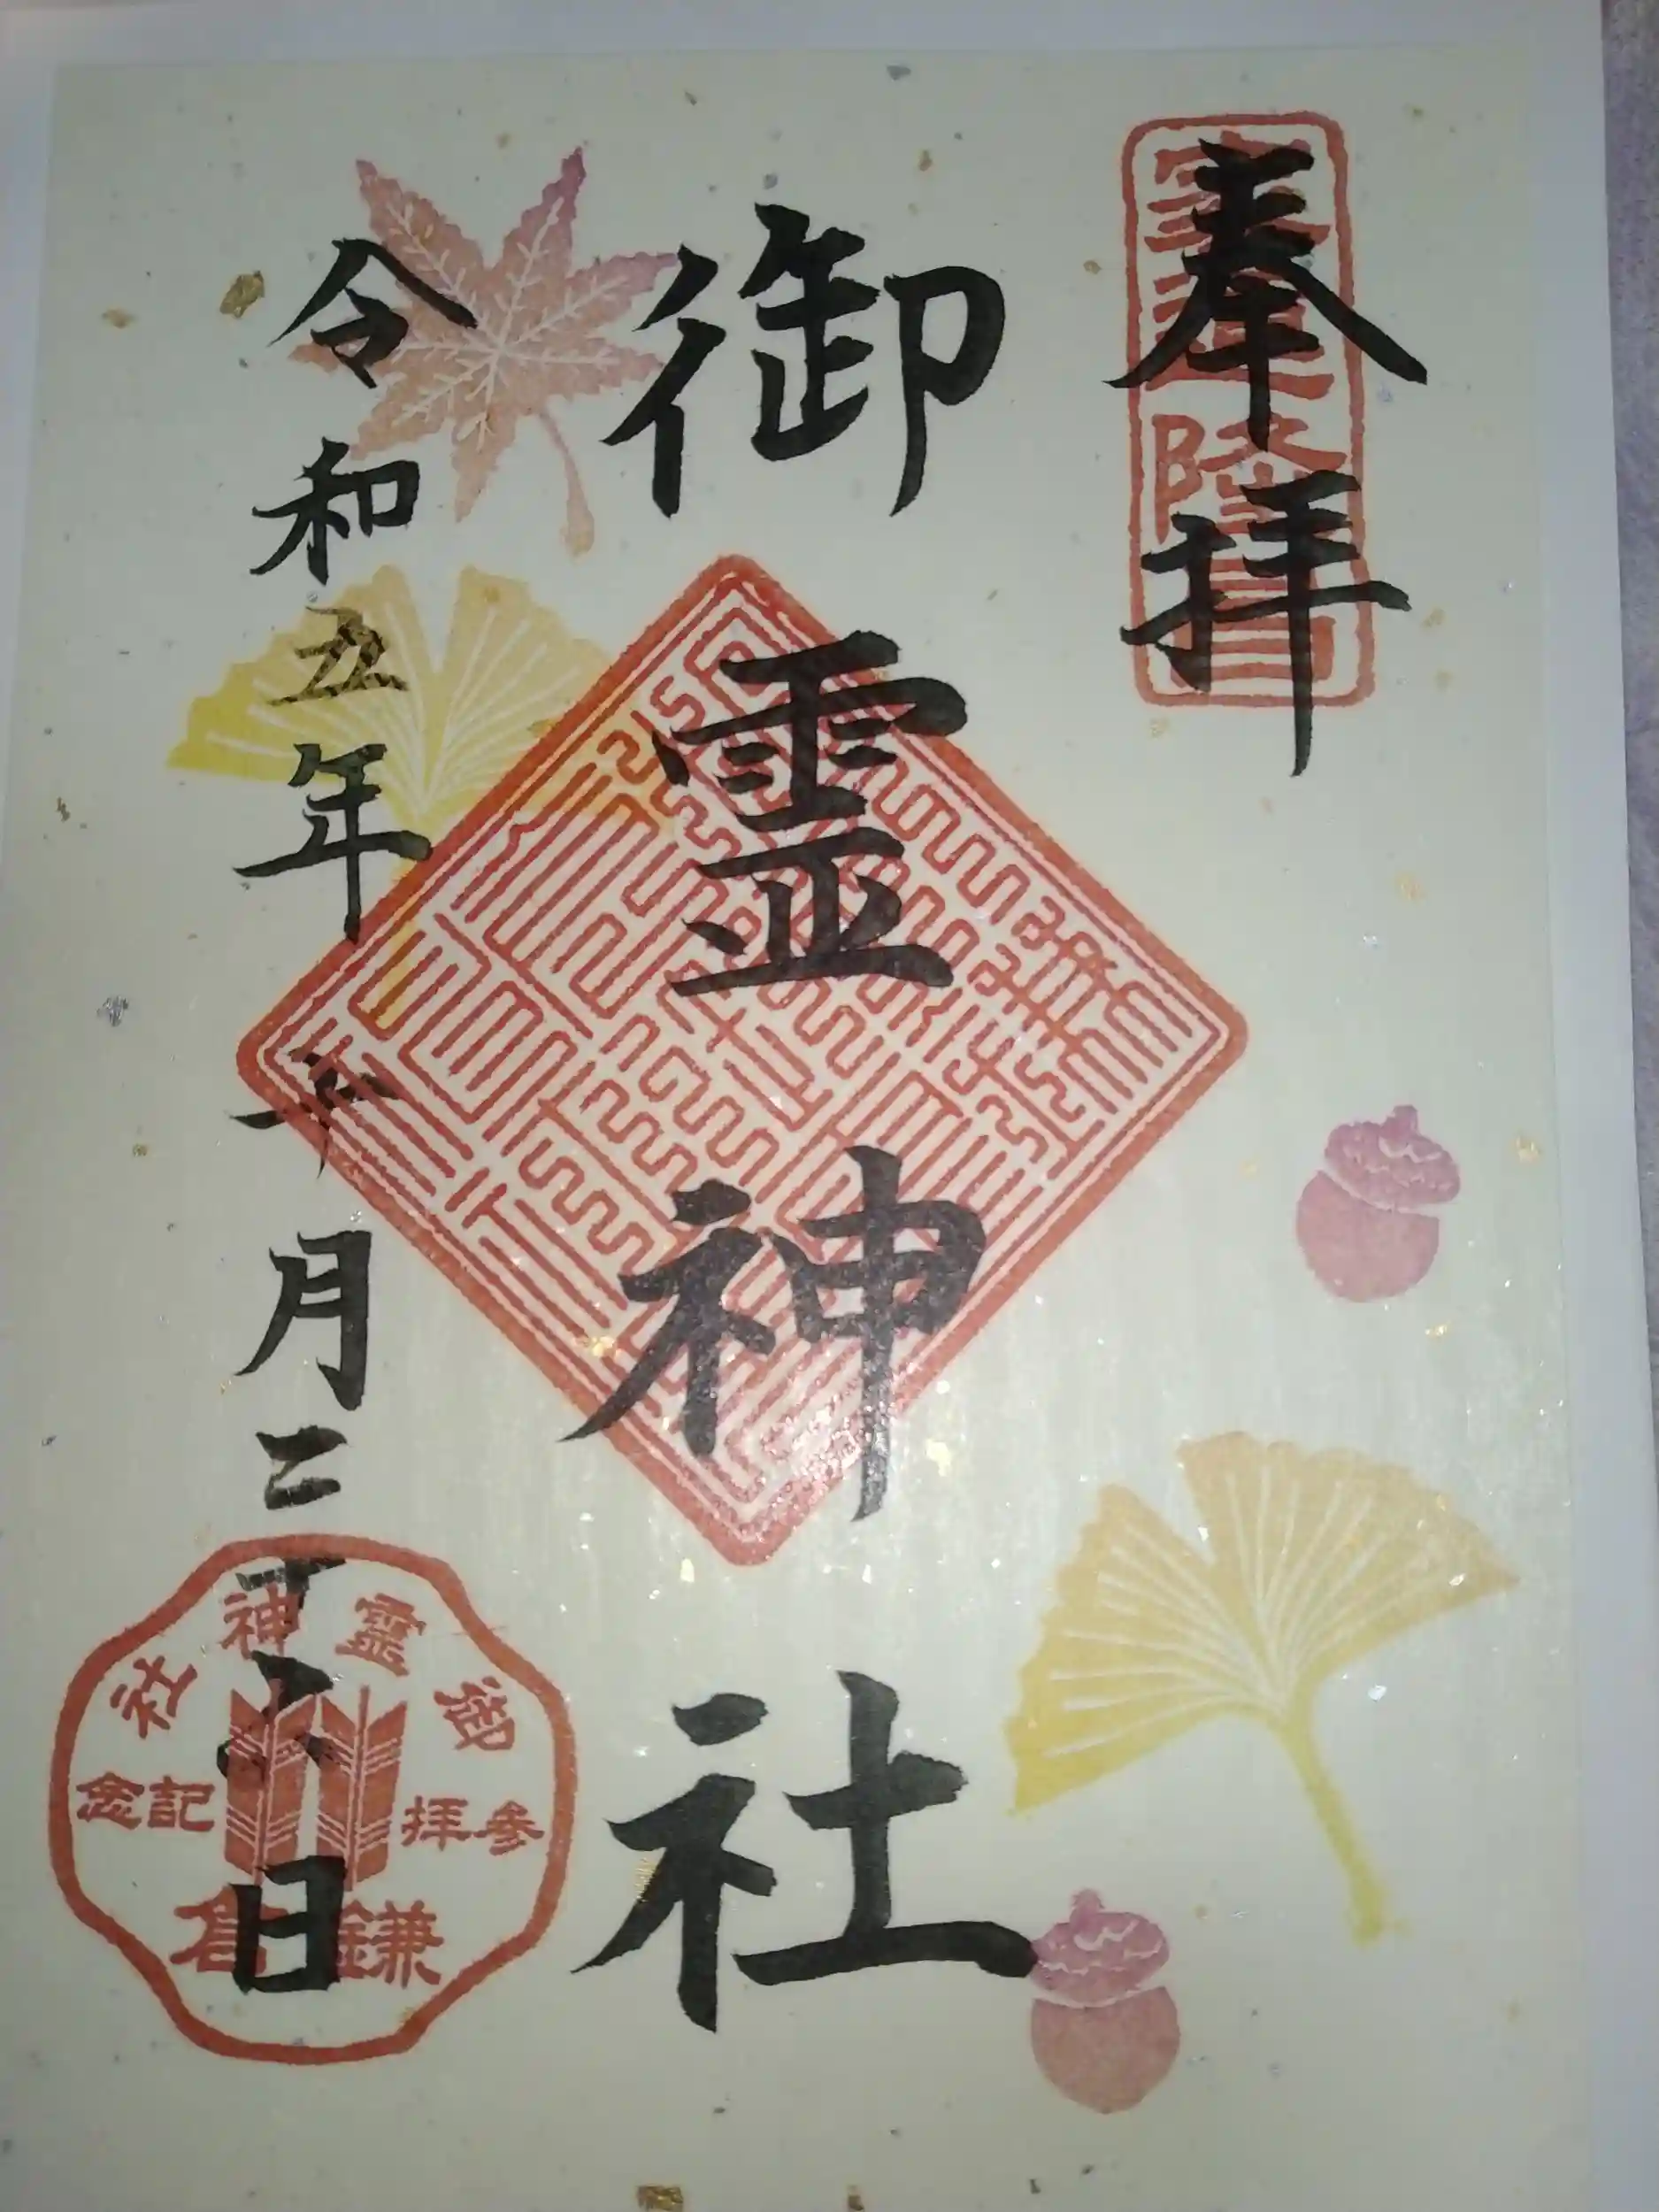 奉拝
御霊神社
令和五年十月二十六日
御霊神社
参拝記念
鎌倉